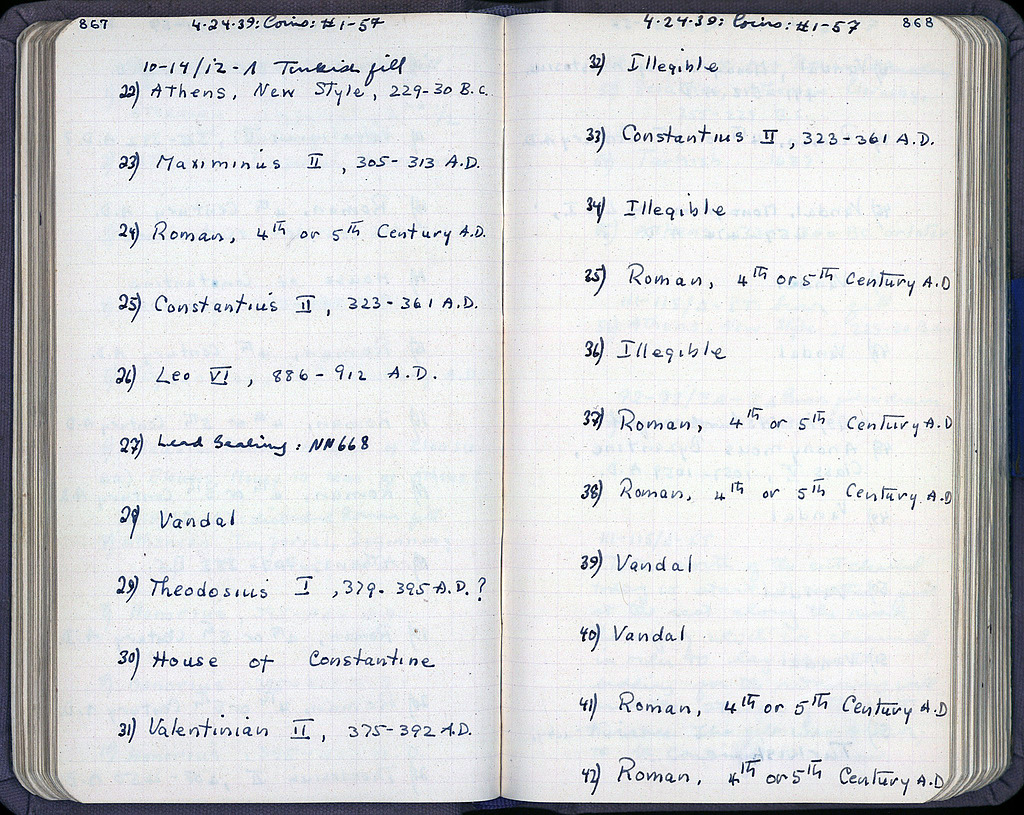 867 4-24-39: Coins: #1-57
10-14/12-1 Turkish fill
22) Athens, New Style, 229-30 B.C.
23) Maximinus II, 305-313 A.D.
24) Roman, 4th or 5th Century A.D.
25) Constantius II, 323-361 A.D.
26) Leo VI, 886-912 A.D.
27) Lead Sealing: NN668
28) Vandal
29) Theodosius I, 379-395 A.D.?
30) House of Constantine
31) Valentinian II, 375-392 A.D.
4-24-39: Coins: #1-57 868
32) Illegible
33) Constantius II, 323-361 A.D.
34) Illegible
35) Roman, 4th or 5th Century A.D
36) Illegible
37) Roman, 4th or 5th Century A.D
38) Roman, 4th or 5th Century A.D
39) Vandal
40) Vandal
41) Roman, 4th or 5th Century A.D
42) Roman, 4th or 5th Century A.D